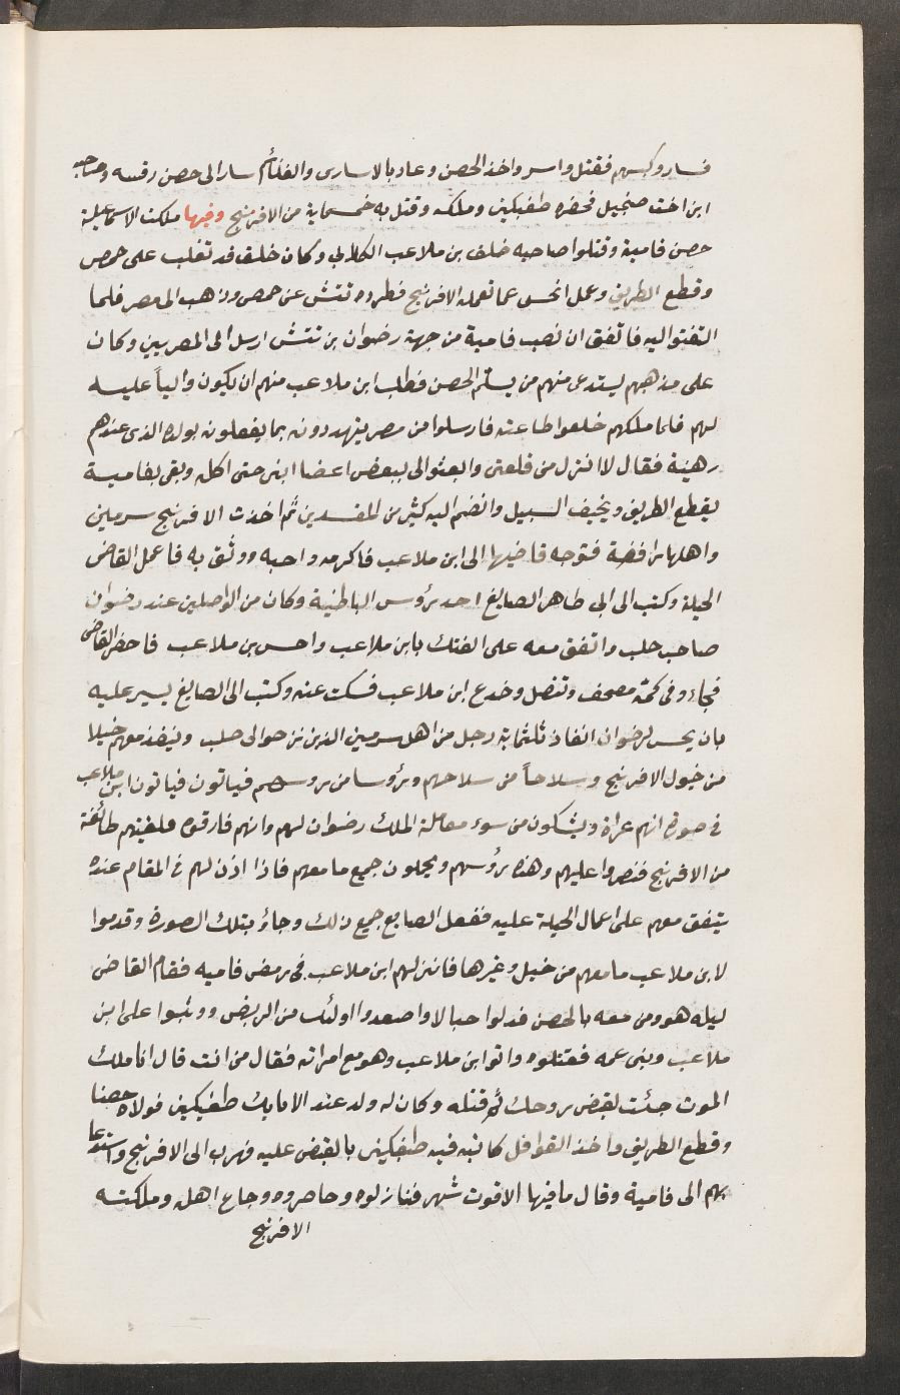 فسار وكبسهم فقتل واسر واخذ الحصن وعاد بالاسارى والغنائم ثم سار الى حصن رفسه وصاحبه
ابن اخت صنجيل فحضره طغتكين وملكه وقتل به خمسماية من الافرنج وفيها ملكت الاسماعيلية
حصن فامية وقتلوا صاحبه خلف بن ملاعب الكلابي وكان خلف قد تغلب على حمص
وقطع الطريق وعمل انحس مما تعمله الافرنج فطرده تتش عن حمص وذهب الى مصر فلما
التفتوا اليه فاتفق ان نصب فامية من جهة رضوان بن تتش ارسل الى المصريين وكان
على مذهبهم يستدعى منهم من يسلم الحصن فطلب ابن ملاعب منهم ان يكون والياً عليه
لهم فلما ملكهم خلعوا طاعته فارسلوا من مصر يتهددونه بما يفعلون بولده الذى عندهم
رهينة فقال لا انزل من قلعتى وابعثوا لى ببعض اعضا ابنى حتى اكله وبقى بفامية
يقطع الطريق ويخيف السبيل وانضم اليه كثير من المفسدين ثم اخذت الافرنج سرمين
واهلها رافضة فتوجه قاضيها الى ابن ملاعب فاكرمه واحبه ووثق به فاعمل القاضى
الحيلة وكتب الى ابى طاهر الصايغ احد رؤوس الباطنية وكان من الواصلين عند رضوان
صاحب حلب واتفق معه على الفتك بابن ملاعب واحس بن ملاعب فاحضر القاضى
فجاء وفى كمه مصحف وتنصل وخدع ابن ملاعب فسكت عنه وكتب الى الصايغ يشير عليه
بان يحسن لرضوان انفاذ ثلثماية رجل من اهل سرمين الذين نزحوا الى حلب وينفذ معهم خيلا
من خيول الافرنج وسلاحاً من سلاحهم ورؤسا من روسهم فياتون فياتون ابن ملاعب
فى صورة انهم غزاة ويشكون من سوء معاملة الملك رضوان لهم وانهم فارقوه فلقيتهم طائفة
من الافرنج فنصروا عليهم وهذه رؤسهم ويحملون جميع ما معهم فاذا اذن لهم فى المقام عنده
يتفق معهم على اعمال الحيلة عليه ففعل الصايع جميع ذلك وجاؤ بتلك الصورة وقدموا
لابن ملاعب ما معهم من خيل وغيرها فانزلهم ابن ملاعب فى ربض فاميه فقام القاضى
ليله هو ومن معه بالحصن فدلوا حبالا واصعدوا اولئك من الربض ووثبوا على ابن
ملاعب وبنى عمه فقتلوه واتوا ابن ملاعب وهو مع امراته فقال من انت قال انا ملك
الموت جئت لقبض روحك ثم قتله وكان له ولد عند الاتابك طغتكين فولاه حصنا
وقطع الطريق واخذ القوافل كاتبه فيه طغتكين بالقبض عليه فهرب الى الافرنج واستدعا
بهم الى فامية وقال ما فيها الا قوت شهر فنازلوه وحاصروه وجاع اهله وملكته
الافرنج